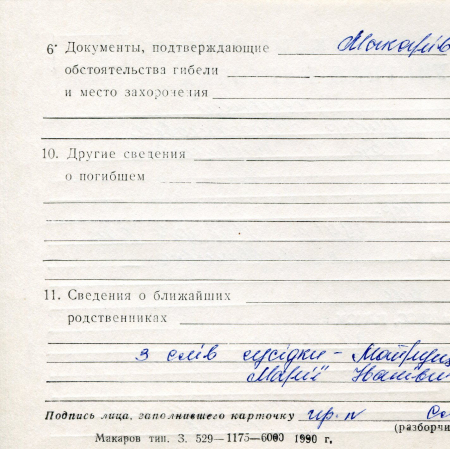 6· Документы, подтверждающие Макарів
обстоятельства гибели
и место захоронения
10. Другие сведения
о погибшем
11. Сведения о ближайших
родственниках
З слів сусідки –
Марії Іванівн
Подпись лица, заполнившего карточку
(разборчи
Макаров тип. З. 529—1175—6000 1990 г.